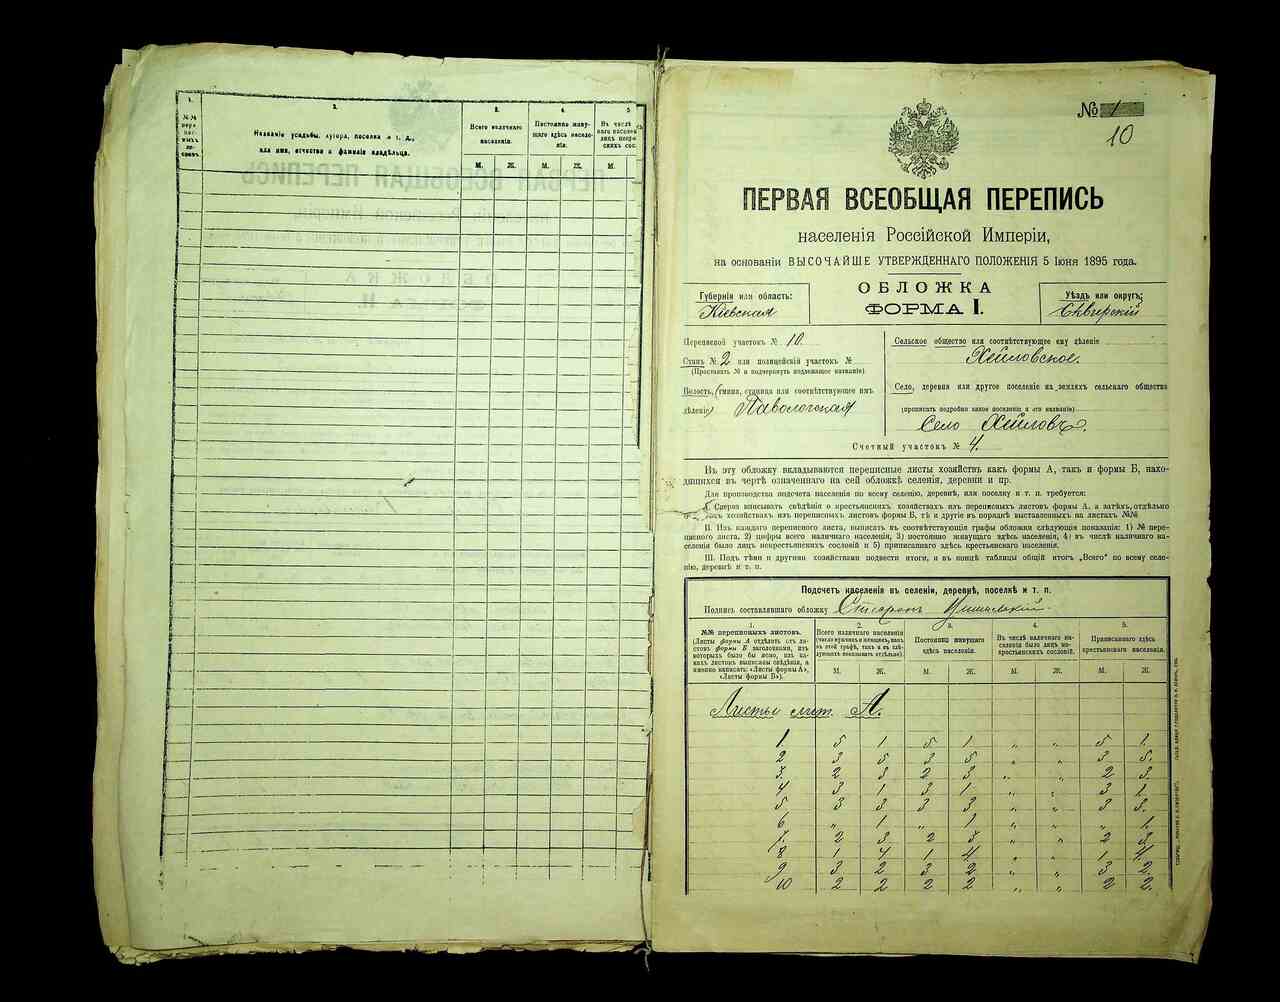 1.
№№ пере- пис- ныхъ ли- стовъ.
2.
Названіе усадьбы, хутора, поселка и т. д.,
или имя, отчество и фамилія владѣльца.
3.
Всего наличнаго
населенія.
М. Ж.
4.
Постоянно живу-
щаго здѣсь населе-
нія.
М. Ж.
5
Въ числѣ
наго населен
лицъ некре-
скихъ сос.
М.
№ 1
10
ПЕРВАЯ ВСЕОБЩАЯ ПЕРЕПИСЬ
населенія Россійской Имперіи,
на основаніи ВЫСОЧАЙШЕ УТВЕРЖДЕННАГО ПОЛОЖЕНІЯ 5 Іюня 1895 года.
ОБЛОЖКА
ФОРМА I.
Губернія или область:
Кіевская
Уѣздъ или округъ:
Сквирскій
Переписной участокъ № 10.
Станъ № 2 или полицейскій участокъ №
(Проставить № и подчеркнуть подлежащее названіе)
Волость, (гмина, станица или соотвѣтствующее имъ
дѣленіе) Паволочская
Сельское общество или соотвѣтствующее ему дѣленіе
Хейловское.
Село, деревня или другое поселеніе на земляхъ сельскаго общества
(прописать подробно какое поселеніе и его названіе)
Село Хейловъ.
Счетный участокъ № 4.
Въ эту обложку вкладываются переписные листы хозяйствъ какъ формы А, такъ и формы Б, нахо-
дящихся въ чертѣ означеннаго на сей обложкѣ селенія, деревни и пр.
Для производства подсчета населенія по всему селенію, деревнѣ, или поселку и т. п. требуется:
I. Сперва вписывать свѣдѣнія о крестьянскихъ хозяйствахъ изъ переписныхъ листовъ формы А, а затѣмъ, отдѣльно
хозяйствахъ изъ переписныхъ листовъ формы Б, тѣ и другіе въ порядкѣ выставленныхъ на листахъ №№
II. Изъ каждаго переписного листа, выписать въ соотвѣтствующія графы обложки слѣдующія показанія: 1) № пере-
писного листа, 2) цифры всего наличнаго населенія, 3) постоянно живущаго здѣсь населенія, 4) въ числѣ наличнаго на-
селенія было лицъ некрестьянскихъ сословій и 5) приписаннаго здѣсь крестьянскаго населенія.
III. Подъ тѣми и другими хозяйствами подвести итоги, и въ концѣ таблицы общій итогъ „Всего" по всему селе-
нію, деревнѣ и т. п.
Подсчетъ населенія въ селеніи, деревнѣ, поселкѣ и т. п.
Подпись составлявшаго обложку
1.
№№ переписныхъ листовъ.
(Листы формы А отдѣлить отъ ли-
стовъ формы Б заголовками, изъ
которыхъ было бы ясно, изъ ка-
кихъ листовъ выписаны свѣдѣнія, а
именно написать: «Листы формы А»,
«Листы формы Б»).
2.
Всего наличнаго населенія
(число мужчинъ и женщинъ, какъ
въ этой графѣ, такъ и въ слѣ-
дующихъ показывать отдѣльно).
М. Ж.
3.
Постоянно живущаго
здѣсь населенія.
М. Ж.
4.
Въ числѣ наличнаго на-
селенія было лицъ не-
крестьянскихъ сословій.
М. Ж.
5.
Приписаннаго здѣсь
крестьянскаго населенія.
М. Ж.
Листы лит. А.
1. 5 1 5 1. „ „ 5 1.
2 3 5 3 5 „ „ 3 5.
3. 2 3 2 3 „ „ 2 3.
4 3 1 3 1. „ „ 3 1.
5. 3 3 3 3 „ „ 3 3.
6 „ 1 „ 1 „ „ „ 1.
7. 2 3 2 3 „ „ 2 3
8 1 4 1 4 „ „ 1 4
9 3 2 3 2 „ „ 3 2.
10 2 2 2 2 „ „ 2 2.